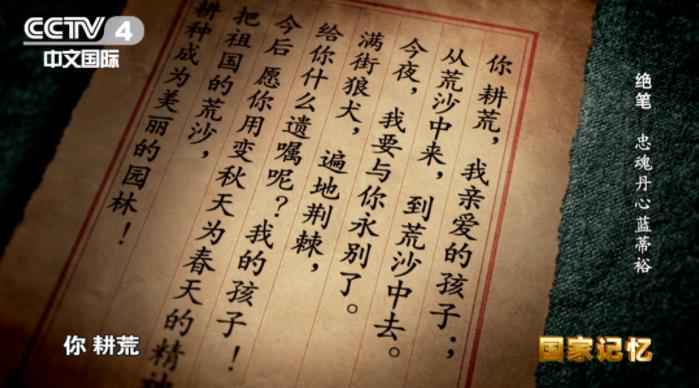 CCTV 4
中文国际
绝笔 忠魂丹心蓝蒂裕
你耕荒，我亲爱的孩子；
从荒沙中来，到荒沙中去。
今夜，我要与你永别了。
满街狼犬，遍地荆棘，
给你什么遗嘱呢？我的孩子！
今后 愿你用变秋天为春天的精神
把祖国的荒沙，
耕种成为美丽的园林！
你 耕荒
国家记忆